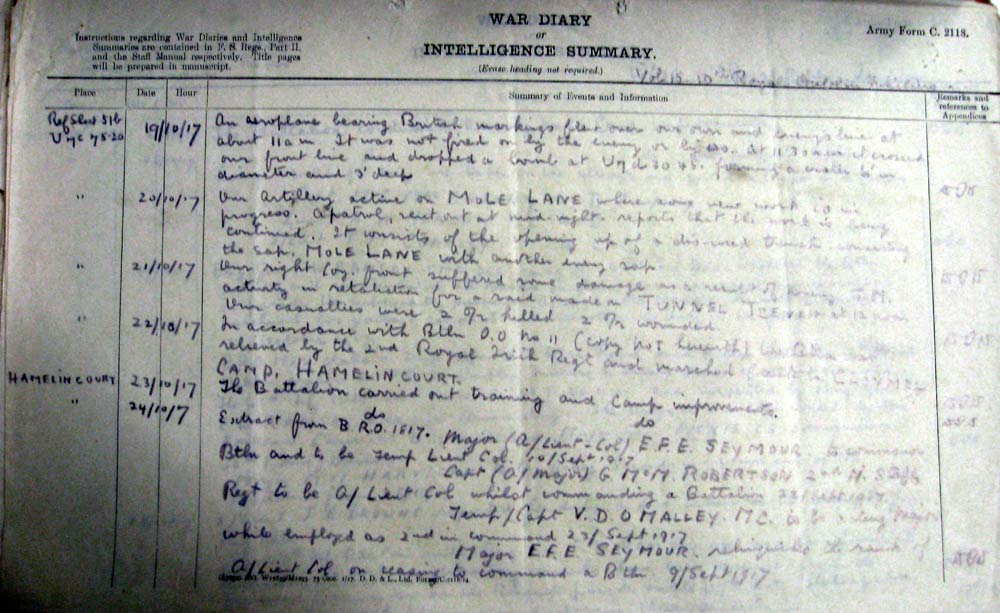 WAR DIARY
or
INTELLIGENCE SUMMARY.
(Erase heading not required.)
Army Form C. 2118.
Instructions regarding War Diaries and Intelligence
Summaries are contained in F. S. Regs., Part II.
and the Staff Manual respectively. Title pages
will be prepared in manuscript.
Place Date Hour Summary of Events and Information Remarks and
references to
Appendices
Ref Sheet 51b
U7c 75.20 19/10/17 An aeroplane bearing British markings flew over our own and enemys line at
about 11 am. It was not fired on by the enemy or by us. At 11.30 am it crossed
our front line and dropped a bomb at U7d 30.45. forming a crater 6' in
diameter and 3' deep
" 20/10/17 Our Artillery active on MOLE LANE where some new work is in
progress. A patrol, sent out at mid-night. reports that the work is being
continued. It consists of the opening up of a disused trench connecting
the sap. MOLE LANE with another enemy sap.
" 21/10/17 Our right Coy. front suffered some damage as a result of enemy T.M.
activity in retaliation for a raid made on TUNNEL TRENCH at
Our casualties were 2 O/r killed 2 O/r wounded.
" 22/10/17 In accordance with Btln O.O No 11 (copy not herewith) the Bttn was
relieved by the 2nd Royal Irish Regt and marched to CLONMEL
CAMP, HAMELINCOURT.
HAMELINCOURT 23/10/17 The Battalion carried out training and Camp improvements.
" 24/10/7 do do
Extract from B.R.O. 1817. Major (A/Lieut-Col) E.F.E. SEYMOUR to command
Btln and to be Temp Lieut Col. 10/Sept 1917
Capt (A/Major) G McM. ROBERTSON 2nd N. Staffs
Regt to be A/Lieut Col whilst commanding a Battalion 23/Sept 1917
Temp/Capt V.D. O MALLEY. MC. to be Major
while employed as 2nd in command 23/Sept 1917
Major E.F.E SEYMOUR. relinquishes the rank of
A/Lieut Col. on ceasing to command a Btln 9/Sept 1917
D. D. & L., Ltd.